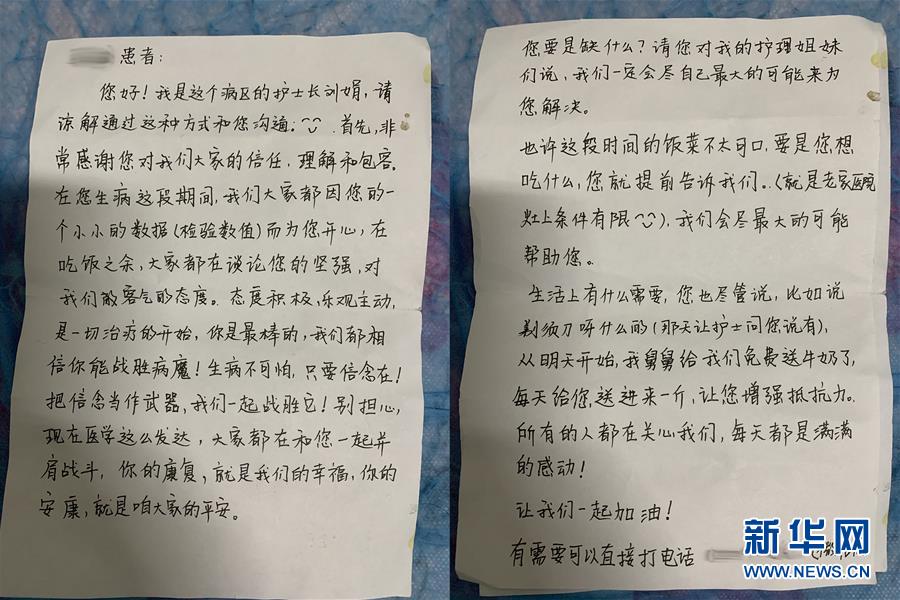 患者：
您好！我是这个病区的护士长刘娟，请
谅解通过这种方式和您沟通。首先，非
常感谢您对我们大家的信任、理解和包容。
在您生病这段期间，我们大家都因您的一
个小小的数据（检验数值）而为您开心，在
吃饭之余，大家都在谈论您的坚强，对
我们般客气的态度。态度积极，乐观主动，
是一切治疗的开始，你是最棒的，我们都相
信你能战胜病魔！生病不可怕，只要信念在！
把信念当作武器，我们一起战胜它！别担心，
现在医学这么发达，大家都在和您一起并
肩战斗，你的康复，就是我们的幸福，你的
安康，就是咱大家的平安。
您要是缺什么？请您对我的护理姐妹
们说，我们一定会尽自己最大的可能来为
您解决。
也许这段时间的饭菜不太可口，要是您想
吃什么，您就提前告诉我们。（就是老家医院
灶上条件有限），我们会尽最大的可能
帮助您。
生活上有什么需要，您也尽管说，比如说
剃须刀呀什么的（那天让护士问您说有），
从明天开始，我舅舅给我们免费送牛奶了，
每天给您送进来一斤，让您增强抵抗力。
所有的人都在关心我们，每天都是满满
的感动！
让我们一起加油！
有需要可以直接打电话
新华网
WWW.NEWS.CN